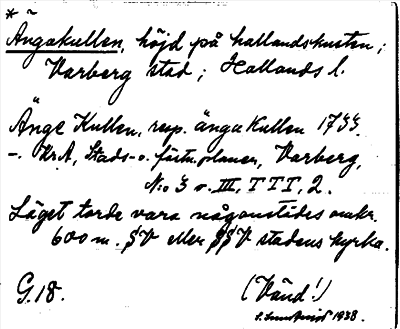 * ~
Ängakullen, höjd på hallandskusten;
Varberg stad; Hallands l.
Änge Kullen, resp. änga Kullen 1733.
-. Kr.A, Stads- o. fästn.planer, Varberg,
N:o 3 o. III, T T T, 2.
Läget torde vara någonstädes omkr.
600 m. SV eller SSV stadens kyrka.
G.18.
(Vänd!)
1938.